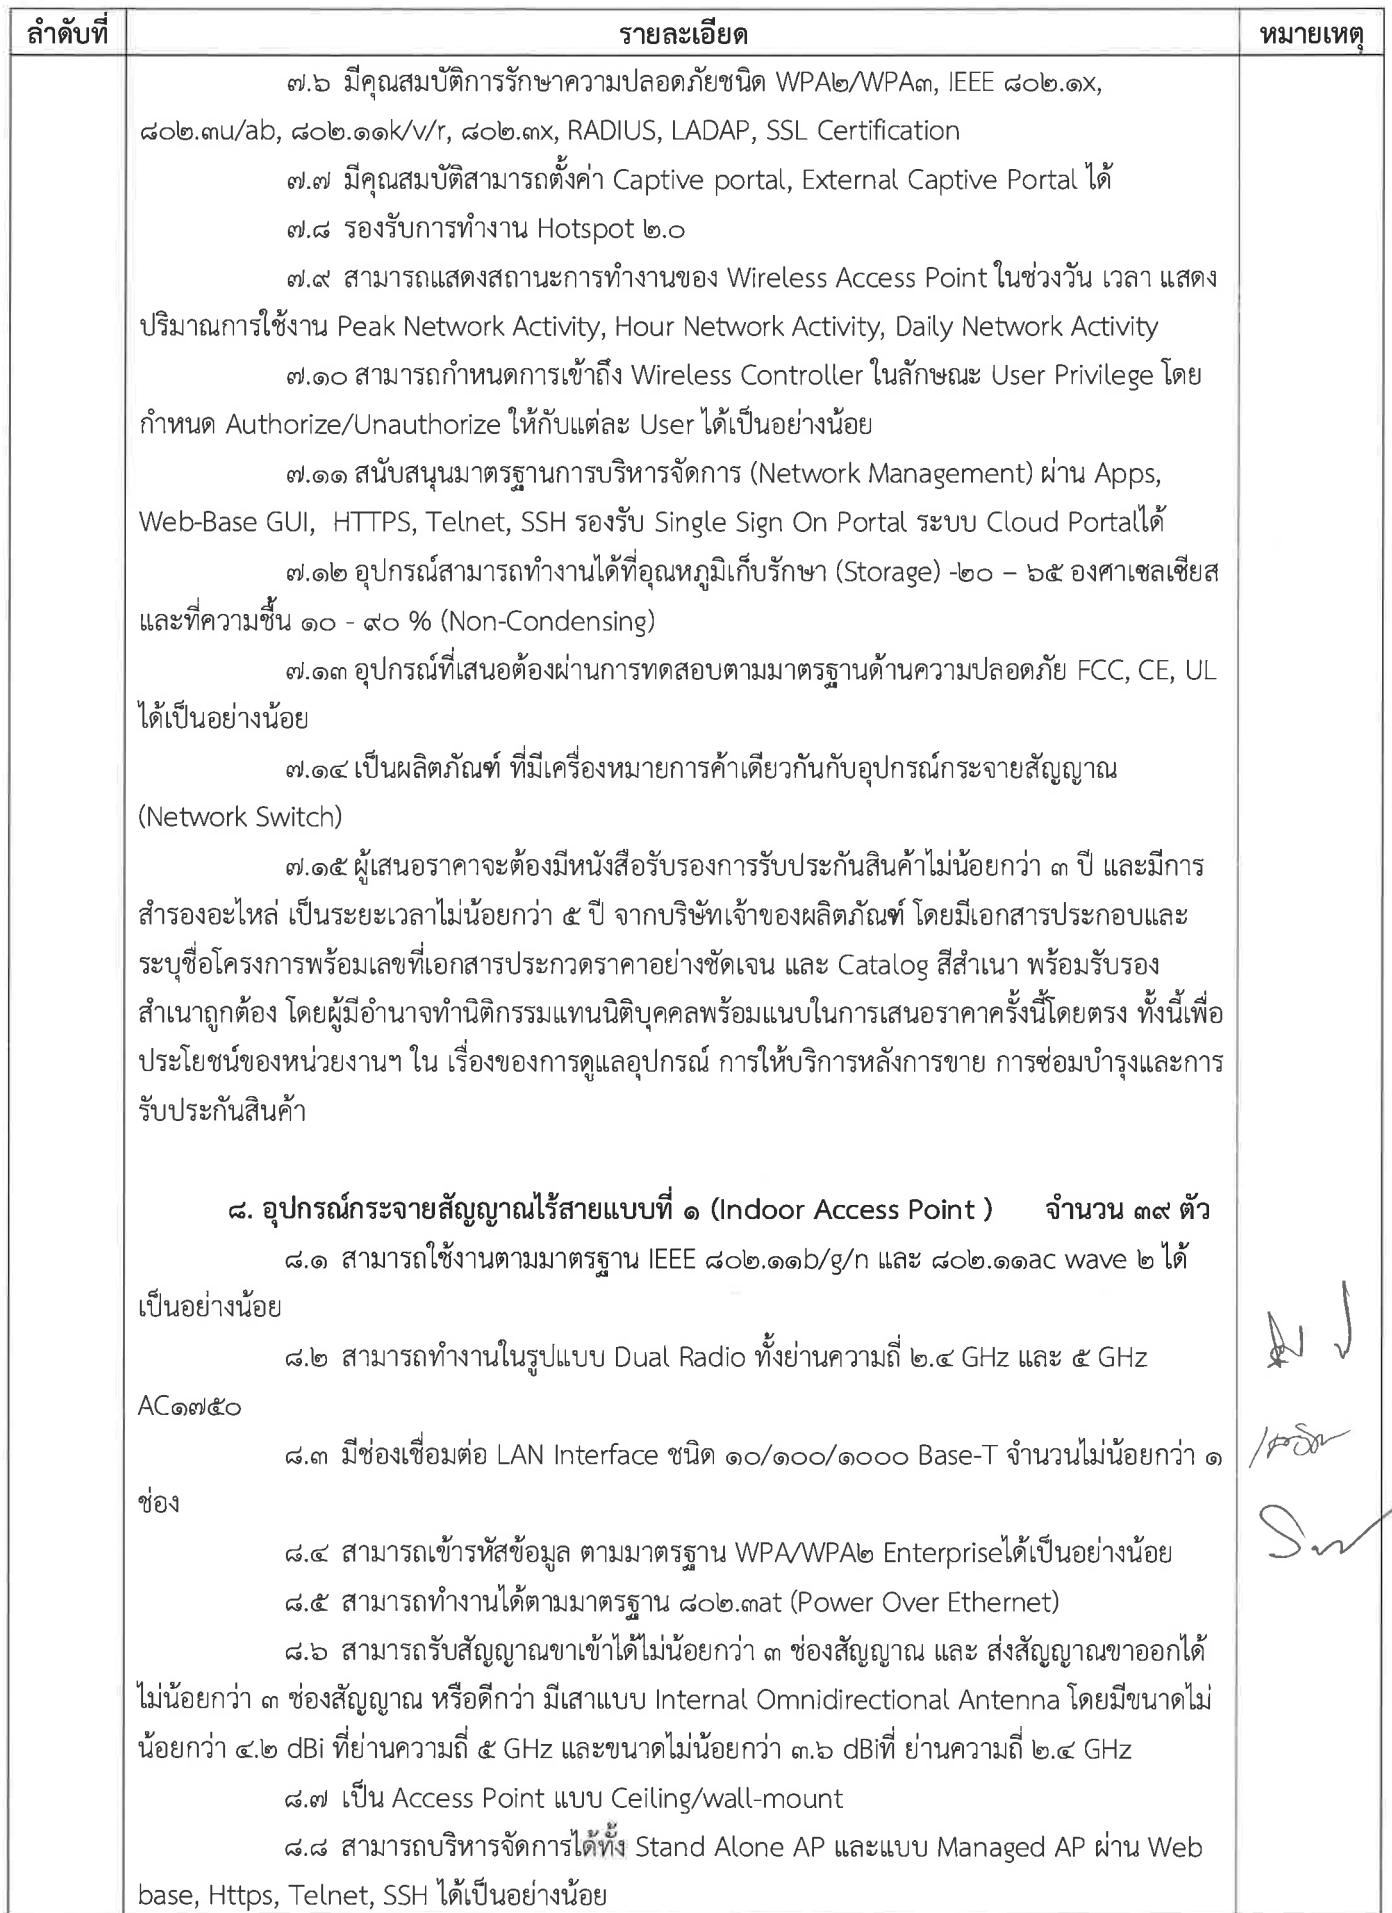 ลำดับที่ รายละเอียด หมายเหตุ
๗.๖ มีคุณสมบัติการรักษาความปลอดภัยชนิด WPA๒/WPA๓, IEEE ๘๐๒.๑x,
๘๐๒.๓u/ab, ๘๐๒.๑๑k/v/r, ๘๐๒.๓x, RADIUS, LADAP, SSL Certification
๗.๗ มีคุณสมบัติสามารถตั้งค่า Captive portal, External Captive Portal ได้
๗.๘ รองรับการทำงาน Hotspot ๒.๐
๗.๙ สามารถแสดงสถานะการทำงานของ Wireless Access Point ในช่วงวัน เวลา แสดง
ปริมาณการใช้งาน Peak Network Activity, Hour Network Activity, Daily Network Activity
๗.๑๐ สามารถกำหนดการเข้าถึง Wireless Controller ในลักษณะ User Privilege โดย
กำหนด Authorize/Unauthorize ให้กับแต่ละ User ได้เป็นอย่างน้อย
๗.๑๑ สนับสนุนมาตรฐานการบริหารจัดการ (Network Management) ผ่าน Apps,
Web-Base GUI, HTTPS, Telnet, SSH รองรับ Single Sign On Portal ระบบ Cloud Portalได้
๗.๑๒ อุปกรณ์สามารถทำงานได้ที่อุณหภูมิเก็บรักษา (Storage) -๒๐ – ๖๕ องศาเซลเซียส
และที่ความชื้น ๑๐ - ๙๐ % (Non-Condensing)
๗.๑๓ อุปกรณ์ที่เสนอต้องผ่านการทดสอบตามมาตรฐานด้านความปลอดภัย FCC, CE, UL
ได้เป็นอย่างน้อย
๗.๑๔ เป็นผลิตภัณฑ์ ที่มีเครื่องหมายการค้าเดียวกันกับอุปกรณ์กระจายสัญญาณ
(Network Switch)
๗.๑๕ ผู้เสนอราคาจะต้องมีหนังสือรับรองการรับประกันสินค้าไม่น้อยกว่า ๓ ปี และมีการ
สำรองอะไหล่ เป็นระยะเวลาไม่น้อยกว่า ๕ ปี จากบริษัทเจ้าของผลิตภัณฑ์ โดยมีเอกสารประกอบและ
ระบุชื่อโครงการพร้อมเลขที่เอกสารประกวดราคาอย่างชัดเจน และ Catalog สีสำเนา พร้อมรับรอง
สำเนาถูกต้อง โดยผู้มีอำนาจทำนิติกรรมแทนนิติบุคคลพร้อมแนบในการเสนอราคาครั้งนี้โดยตรง ทั้งนี้เพื่อ
ประโยชน์ของหน่วยงานฯ ใน เรื่องของการดูแลอุปกรณ์ การให้บริการหลังการขาย การซ่อมบำรุงและการ
รับประกันสินค้า
๘. อุปกรณ์กระจายสัญญาณไร้สายแบบที่ ๑ (Indoor Access Point ) จำนวน ๓๙ ตัว
๘.๑ สามารถใช้งานตามมาตรฐาน IEEE ๘๐๒.๑๑b/g/n และ ๘๐๒.๑๑ac wave ๒ ได้
เป็นอย่างน้อย
๘.๒ สามารถทำงานในรูปแบบ Dual Radio ทั้งย่านความถี่ ๒.๔ GHz และ ๕ GHz
AC๑๗๕๐
๘.๓ มีช่องเชื่อมต่อ LAN Interface ชนิด ๑๐/๑๐๐/๑๐๐๐ Base-T จำนวนไม่น้อยกว่า ๑
ช่อง
๘.๔ สามารถเข้ารหัสข้อมูล ตามมาตรฐาน WPA/WPA๒ Enterpriseได้เป็นอย่างน้อย
๘.๕ สามารถทำงานได้ตามมาตรฐาน ๘๐๒.๓at (Power Over Ethernet)
๘.๖ สามารถรับสัญญาณขาเข้าได้ไม่น้อยกว่า ๓ ช่องสัญญาณ และ ส่งสัญญาณขาออกได้
ไม่น้อยกว่า ๓ ช่องสัญญาณ หรือดีกว่า มีเสาแบบ Internal Omnidirectional Antenna โดยมีขนาดไม่
น้อยกว่า ๔.๒ dBi ที่ย่านความถี่ ๕ GHz และขนาดไม่น้อยกว่า ๓.๖ dBiที่ ย่านความถี่ ๒.๔ GHz
๘.๗ เป็น Access Point แบบ Ceiling/wall-mount
๘.๘ สามารถบริหารจัดการได้ทั้ง Stand Alone AP และแบบ Managed AP ผ่าน Web
base, Https, Telnet, SSH ได้เป็นอย่างน้อย